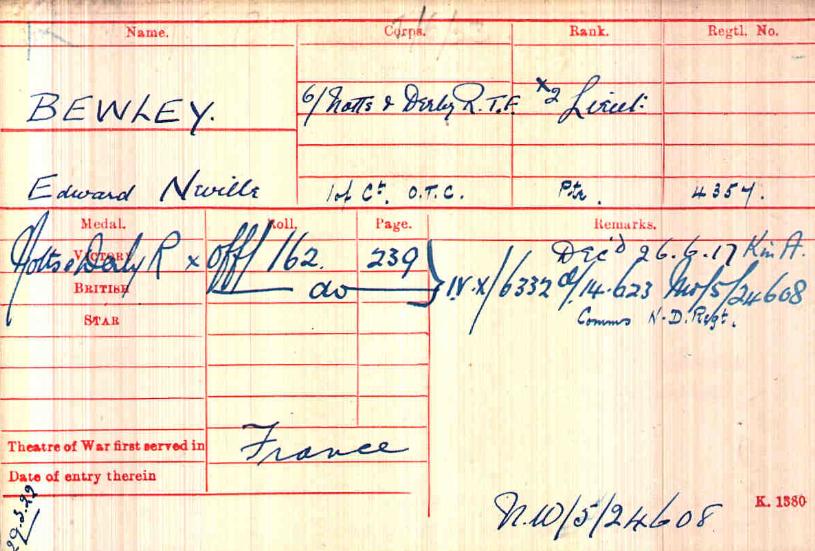 Name. Corps. Rank. Regtl. No.
BEWLEY. 6/Notts & Derby R. T.F. x2 Lieut.
Edward Neville Inf Ct. O.T.C. Pte. 4357.
Medal. Roll. Page. Remarks.
VICTORY Notts & Derby R x Off/162. 239 Dec'd 26.6.17 K in A.
BRITISH do IV.X/6332 d/14.6.23 NW/5/24608
STAR Comms N-D. Regt.
Theatre of War first served in France
Date of entry therein
29.3.22
N.W/5/24608 K. 1380